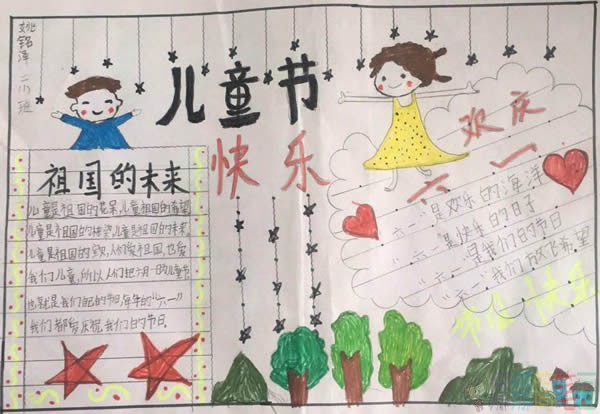 姚铭泽 二小班
儿童节
快乐
欢庆
六一
祖国的未来
儿童是祖国的花朵,儿童祖国的希望
儿童是祖国的栋梁,儿童是祖国的未来,
儿童是祖国的宝贝,人们爱祖国,也爱
我们儿童,所以人们把六月一日的儿童节
也就是我们自己的节日,每年的“六一”
我们都要庆祝,我们的节日.
“六一”是欢乐的海洋
“六一”是快乐的日子
“六一”是我们的节日
“六一”我们放飞希望
节日快乐